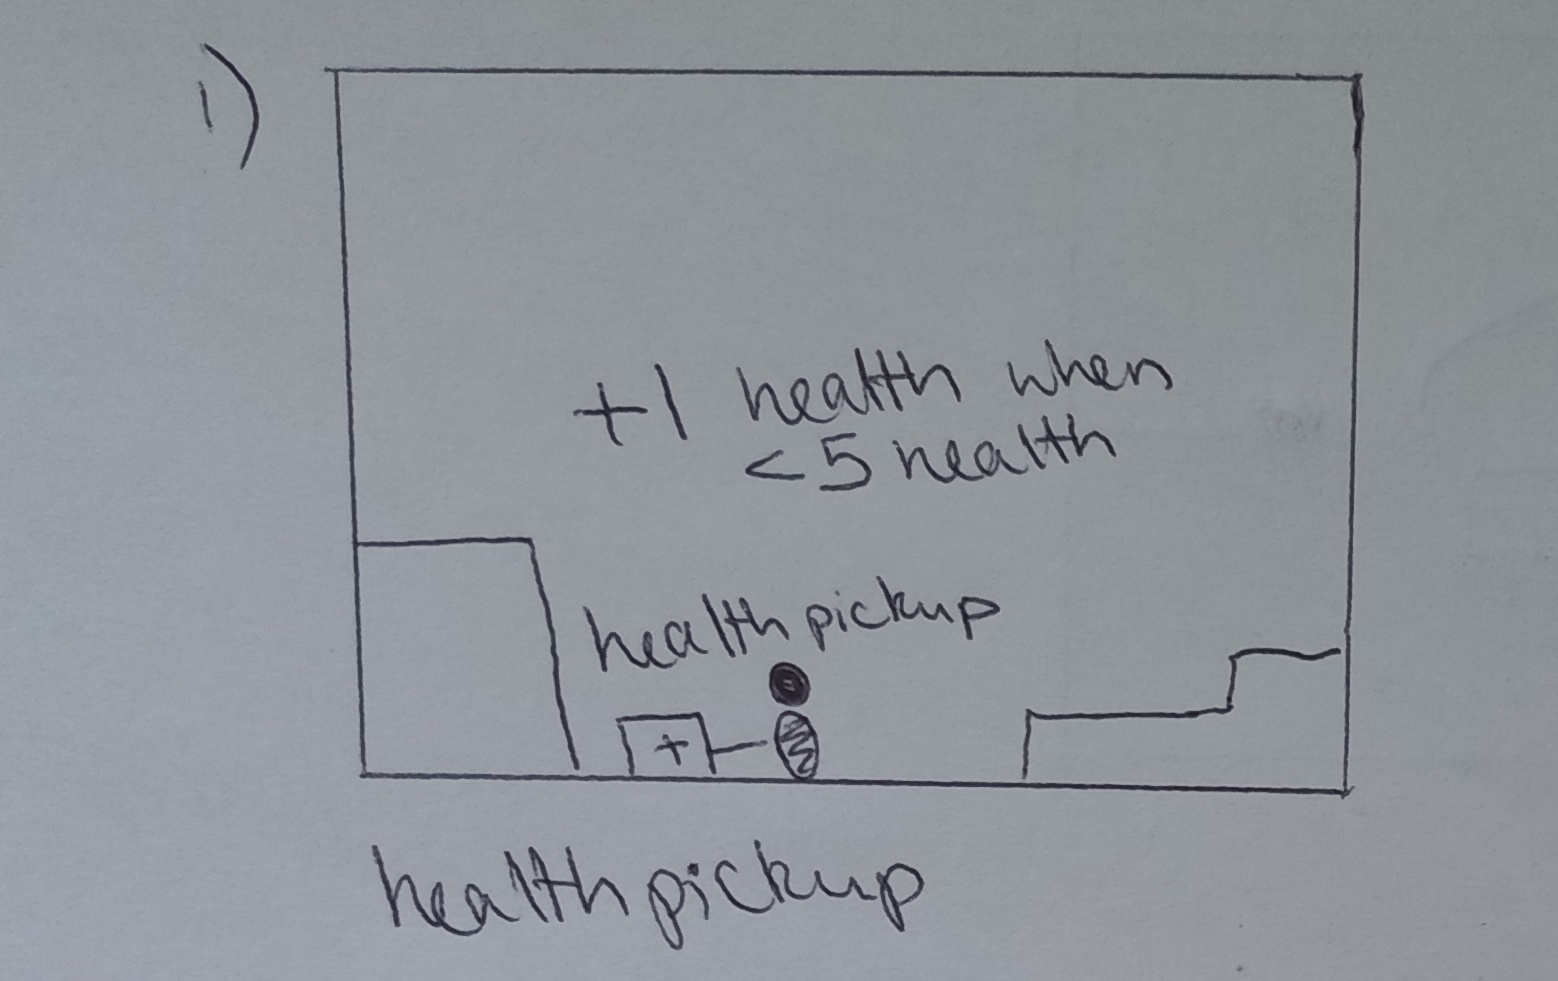 1)
+1 health when
<5 health
health pickup
+
health pickup